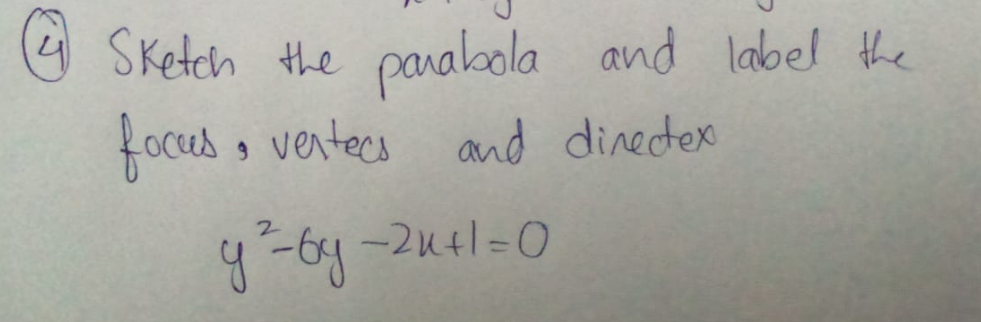 4 Sketch the parabola and label the
focus, vertecs and directex
y²-6y-2x+1=0